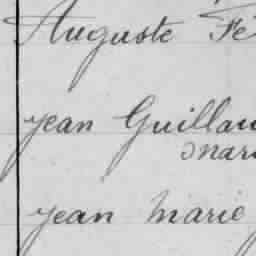 Auguste Fé
Jean Guillau
Mari
Jean Marie